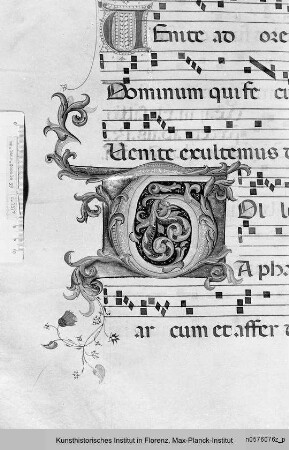 VEnite ad ore
Dominum qui fe ci
Uenite exultemus d
Ol l
A pha
ar cum et affer
Kunsthistorisches Institut in Florenz, Max-Planck-Institut